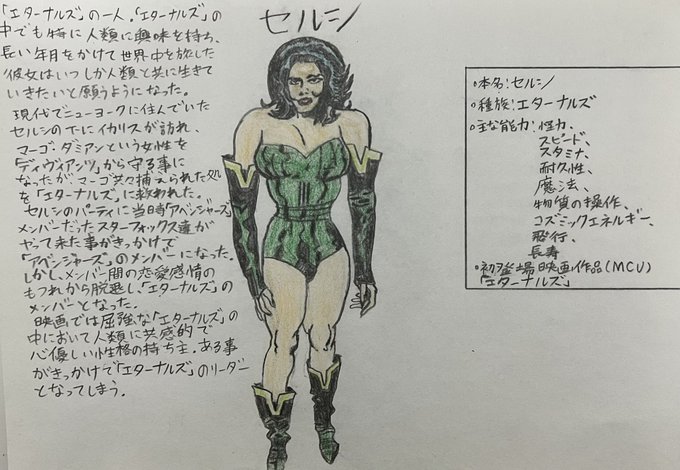 セルシ
「エターナルズ」の一人。「エターナルズ」の
中でも特に人類に興味を持ち、
長い年月をかけて世界中を旅した
彼女はいつしか人類と共に生きて
いきたいと願うようになった。
現代でニューヨークに住んでいた
セルシの下にイカリスが訪れ、
マーゴ・ダミアンという女性を
「ディヴィアンツ」から守る事に
なったが、マーゴ共々捕えられた処
を「エターナルズ」に救われた。
セルシのパーティに当時「アベンジャーズ」
メンバーだったスターフォックス達が
やって来た事がきっかけで
「アベンジャーズ」のメンバーになった。
しかし、メンバー間の恋愛感情の
もつれから脱退し、「エターナルズ」の
メンバーとなった。
映画では屈強な「エターナルズ」の
中において人類に共感的で
心優しい性格の持ち主。ある事
がきっかけで「エターナルズ」のリーダー
となってしまう。
・本名：セルシ
・種族：エターナルズ
・主な能力：怪力、
スピード、
スタミナ、
耐久性、
魔法、
物質の操作、
コズミックエネルギー、
飛行、
長寿
・初登場映画作品(MCU)
「エターナルズ」